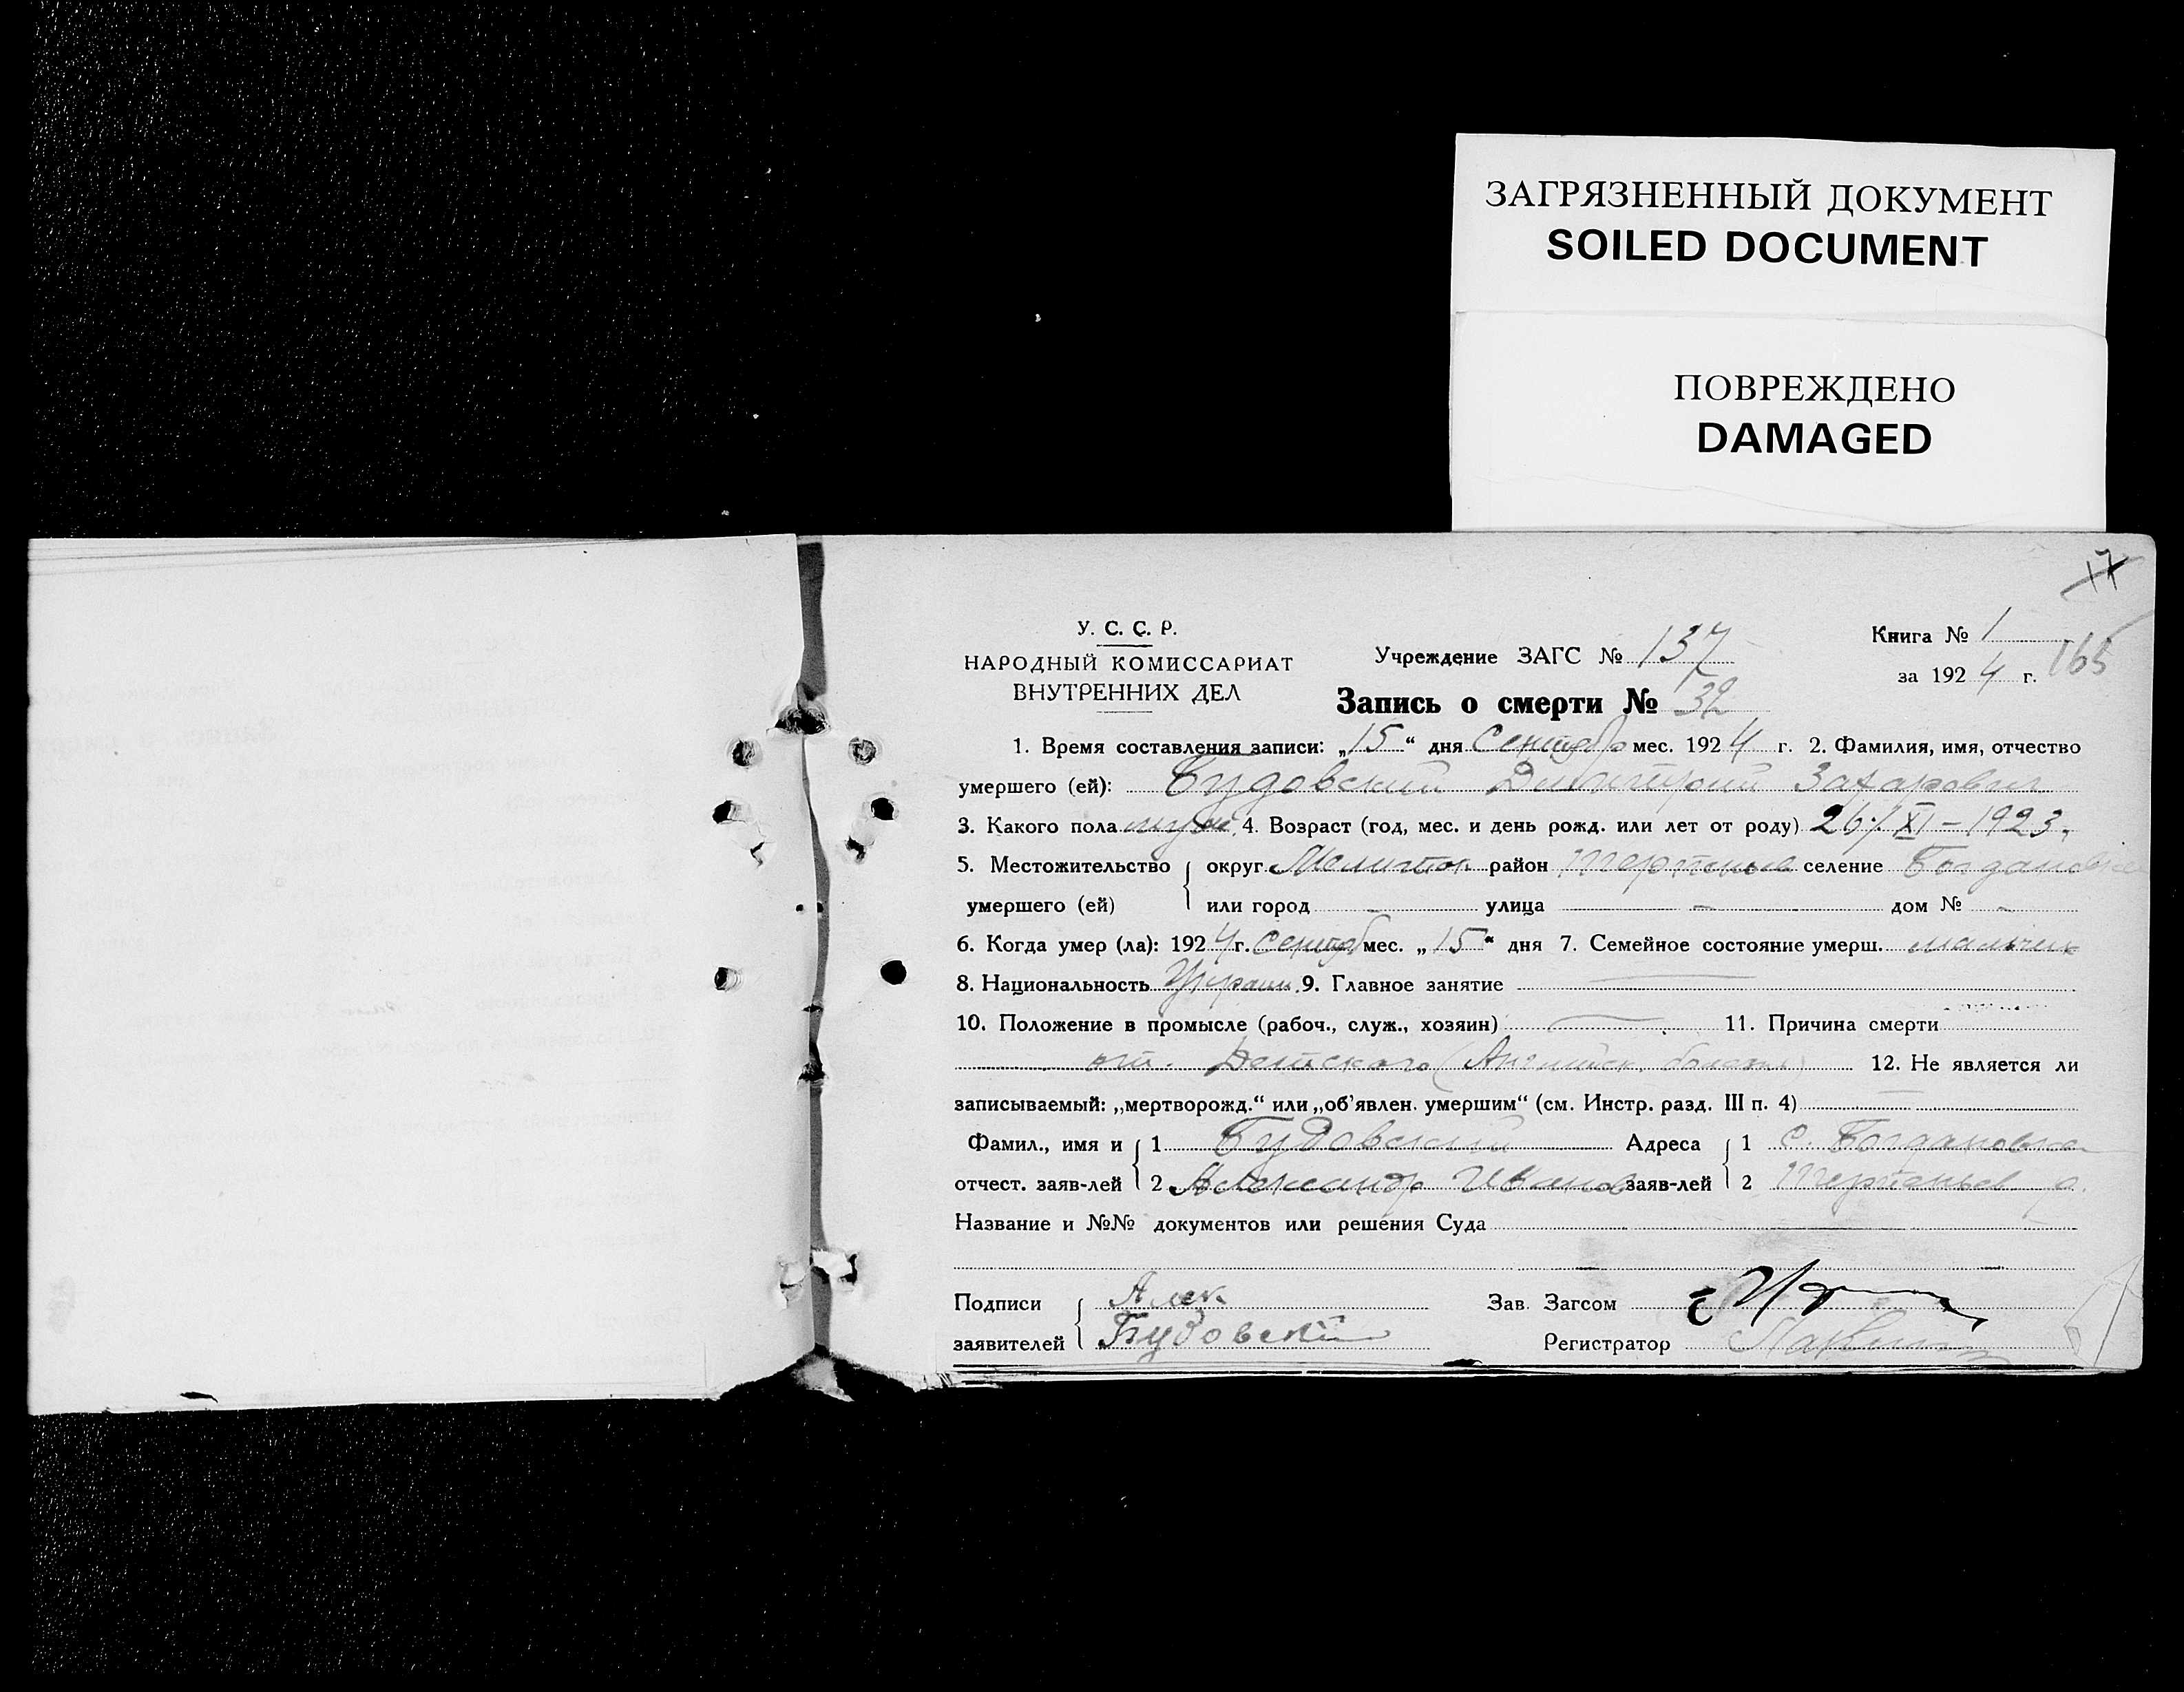 ЗАГРЯЗНЕННЫЙ ДОКУМЕНТ
SOILED DOCUMENT
ПОВРЕЖДЕНО
DAMAGED
17
У. С. С. Р.
НАРОДНЫЙ КОМИССАРИАТ
ВНУТРЕННИХ ДЕЛ
Учреждение ЗАГС № 137
Книга № 1
за 1924 г. 165
Запись о смерти № 32
1. Время составления записи: „15“ дня Сентябр мес. 1924 г. 2. Фамилия, имя, отчество
умершего (ей): Будовский Димитрий Захарович
3. Какого пола муж. 4. Возраст (год, мес. и день рожд. или лет от роду) 26/XI – 1923.
5. Местожительство округ Мелитоп район селение Богдановка
умершего (ей) или город – улица – дом № –
6. Когда умер (ла): 1924 г. Сентяб мес. „15“ дня 7. Семейное состояние умерш. мальчик
8. Национальность Украин. 9. Главное занятие —
10. Положение в промысле (рабоч., служ., хозяин) — 11. Причина смерти
от. Детского (Английск. болезни) 12. Не является ли
записываемый: „мертворожд.“ или „об'явлен. умершим“ (см. Инстр. разд. III п. 4) —
Фамил., имя и 1 Будовский Адреса 1 с. Богдановка
отчест. заяв-лей 2 Александр Иванов заяв-лей 2 р.
Название и №№ документов или решения Суда —
Подписи Алек Зав. Загсом
заявителей Будовский Регистратор